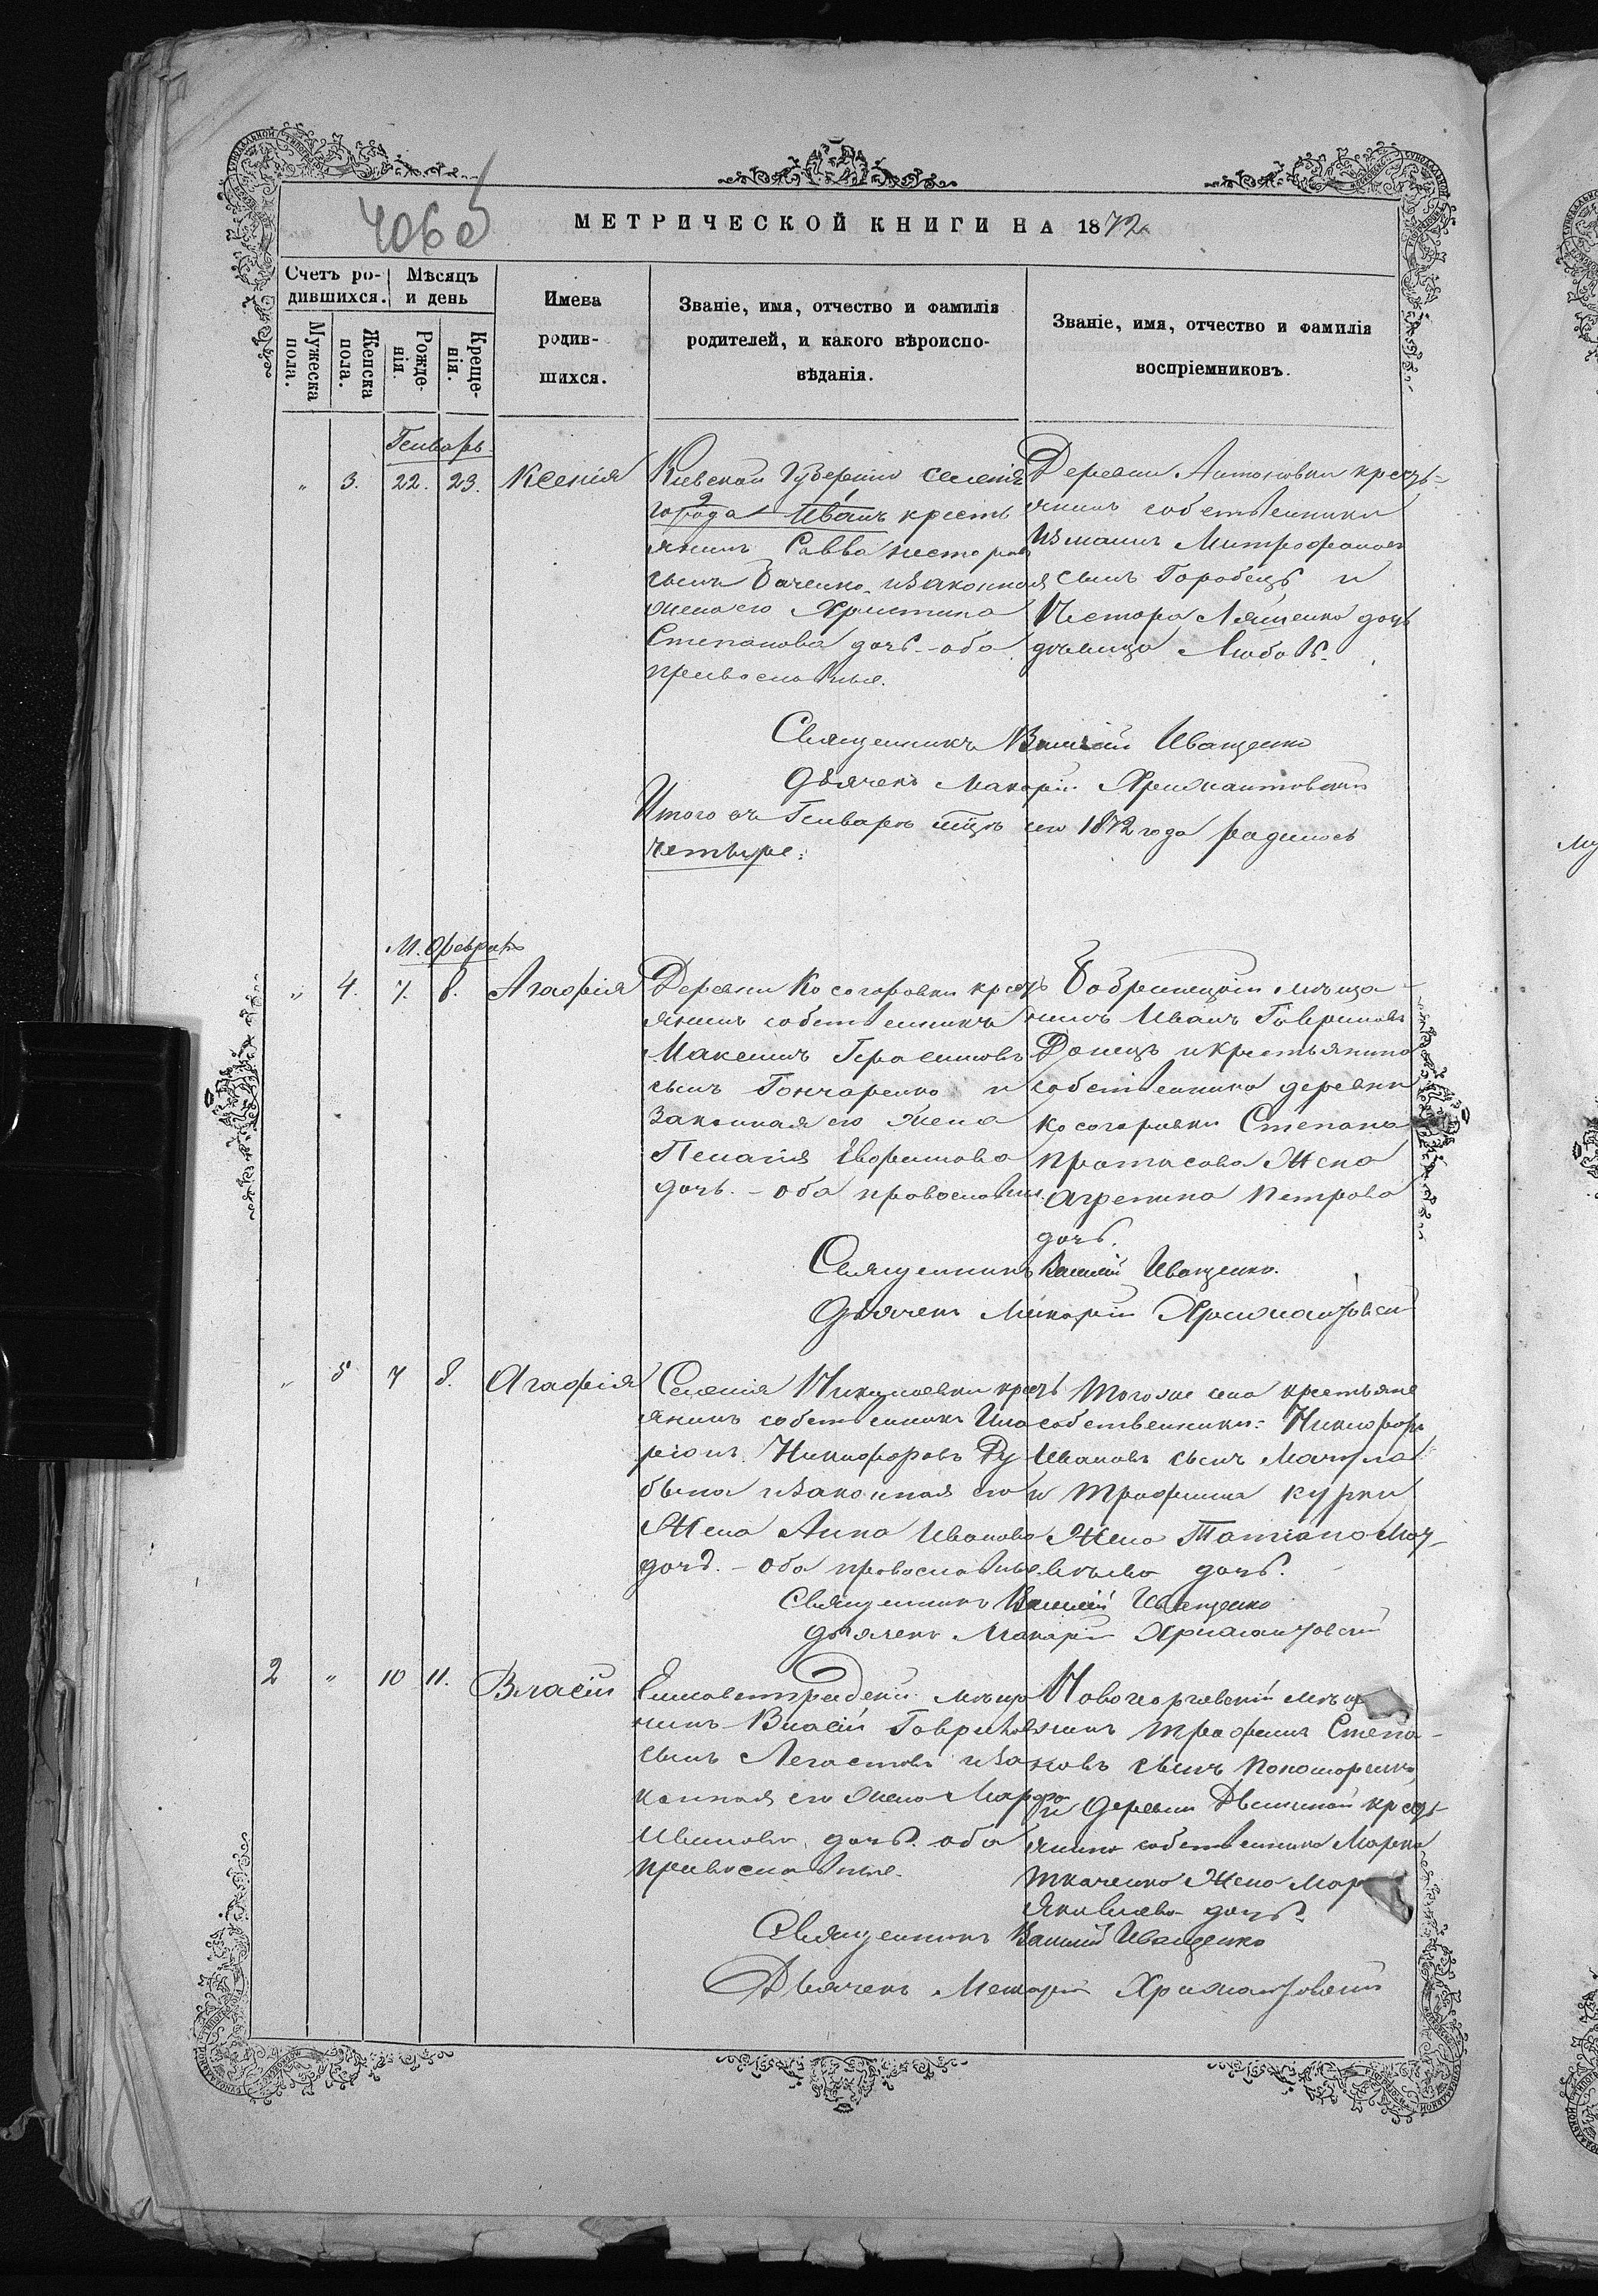 406 об
МЕТРИЧЕСКОЙ КНИГИ НА 1872
Счетъ ро-
дившихся.
Мѣсяцъ
и день
Мужеска
пола.
Женска
пола.
Рожде-
нія.
Креще-
нія.
Имена
родив-
шихся.
Званіе, имя, отчество и фамилія
родителей, и какого вѣроиспо-
вѣданія.
Званіе, имя, отчество и фамилія
воспріемниковъ.
Генварь
„ 3. 22. 23. Ксенія
Кіевской Губерніи селенія
города Иванъ кресть
янинъ Савва Несторовъ
сынъ Баченко и законная
жена его Христина
Степанова дочь - оба
православные.
Деревни Антоновки кресть-
янинъ собственникъ
Измаилъ Митрофановъ
сынъ Горобецъ и
Нестора Ляшенко дочь
дѣвица Любовь.
Священникъ Василій Иващенко
Дьячекъ Макарій Хрисанфовскій
Итого въ Генварѣ мцѣ сего 1872 года родилось
четыре:
М. Февраль
„ 4. 7. 8. Агафія
Деревни Косогоровки кресть
янинъ собственникъ
Максимъ Герасимовъ
сынъ Гончаренко и
законная его жена
Пелагія Ефимова
дочь. - оба православные.
Бобринецкій мѣща-
нинъ Иванъ Гавриловъ
Донецъ и крестьянина
собственника деревни
Косогоровки Степана
Протасова жена
Агрепина Петрова
дочь.
Священникъ Василій Иващенко.
Дьячекъ Макарій Хрисанфовскій
„ 5 7 8. Агафія
Селенія Николаевки кресть
янинъ собственникъ Ила
ріонъ Никифоровъ Ду
бына и законная его
жена Анна Иванова
дочь. - оба православные.
Того же села крестьяне
собственники: Никифоръ
Ивановъ сынъ Мачула
и Трофима Курки
жена Татіана Мат-
вѣева дочь.
Священникъ Василій Иващенко
Дьячекъ Макарій Хрисанфовскій
2 „ 10 11. Власій
Елисаветградскій мѣща
нинъ Власій Гавриловъ
сынъ Легостовъ и за
конная его жена Марфа
Иванова дочь. оба
православные.
Новогеоргіевскій мѣща
нинъ Трофимъ Степа-
новъ сынъ Пономаренко
и деревни кресть-
янина собственника Марка
Ткаченко жена Мар
Яковлева дочь.
Священникъ Василій Иващенко
Дьячекъ Макарій Хрисанфовскій